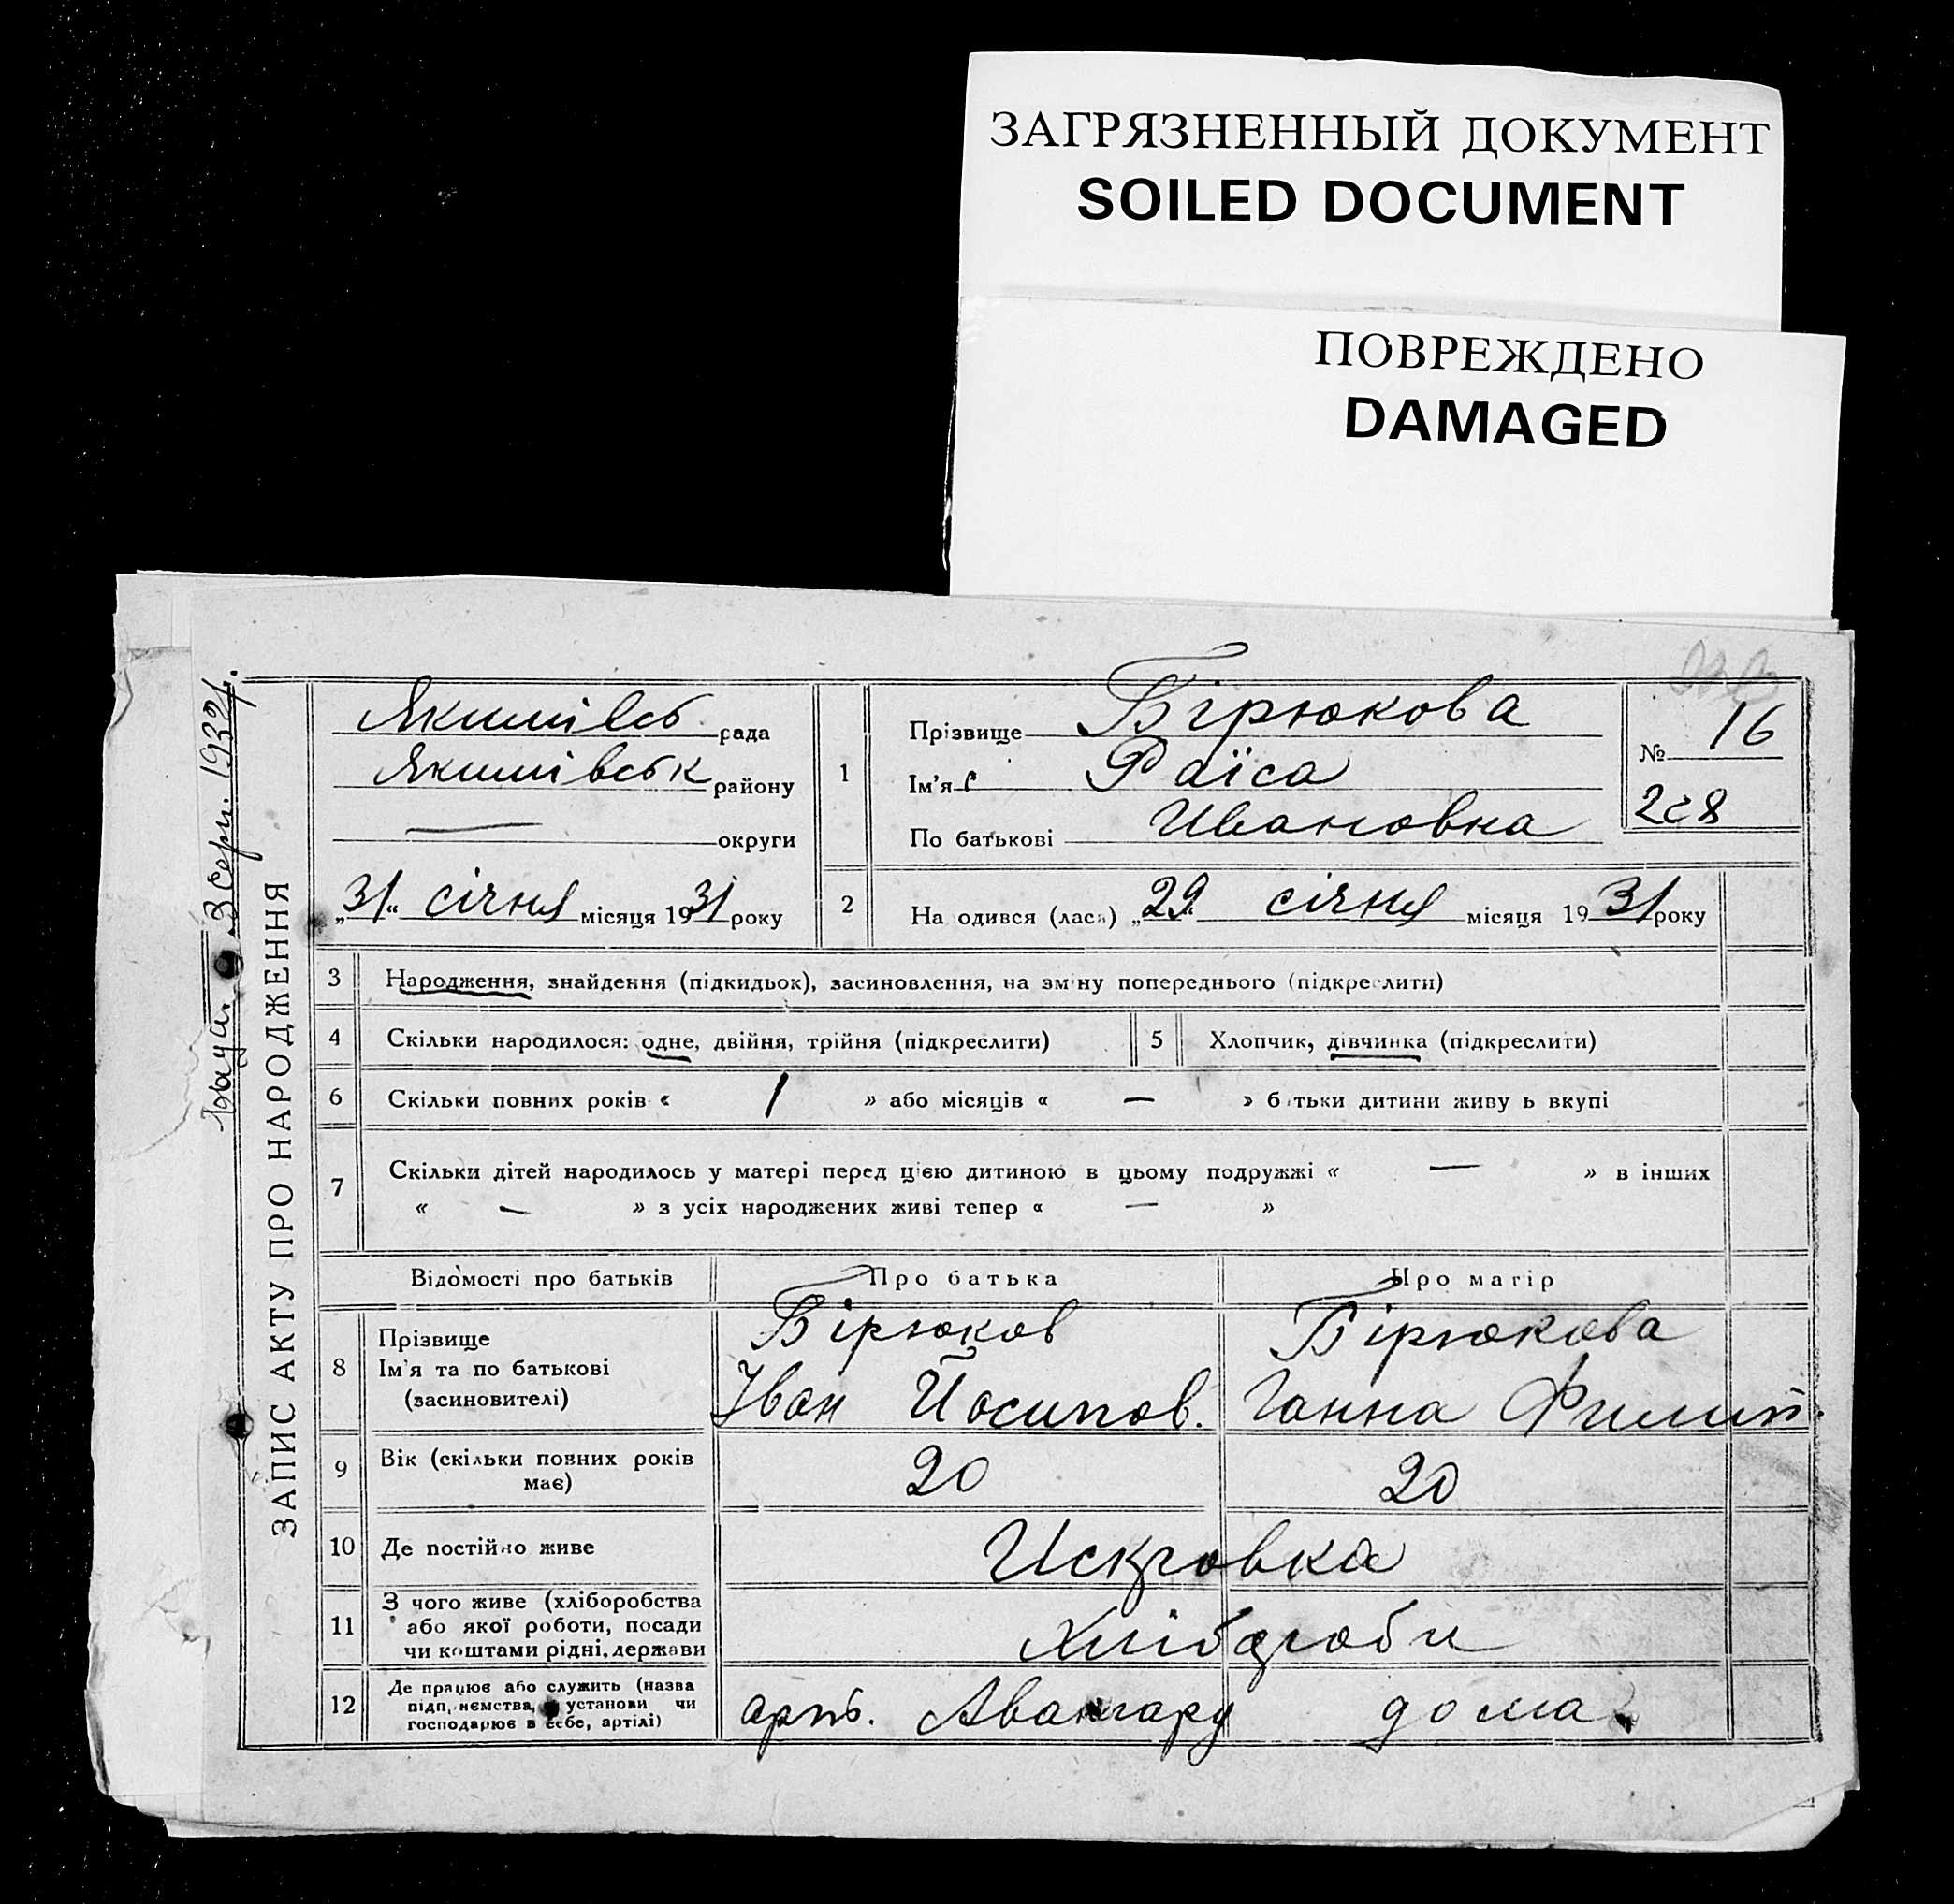 ЗАГРЯЗНЕННЫЙ ДОКУМЕНТ
SOILED DOCUMENT
ПОВРЕЖДЕНО
DAMAGED
3 серп. 1932 р.
ЗАПИС АКТУ ПРО НАРОДЖЕННЯ
Якимівсь рада
Якимівськ району
— округи
„31“ січня місяця 1931 року
1
Прізвище Бірюкова
Ім'я Раїса
По батькові Ивановна
№ 16
228
2
На одився (лась) „29 січня місяця 1931 року
3 Народження, знайдення (підкидьок), засиновлення, на зміну попереднього (підкреслити)
4 Скільки народилося: одне, двійня, трійня (підкреслити) 5 Хлопчик, дівчинка (підкреслити)
6 Скільки повних років « 1 » або місяців « — » батьки дитини живу ь вкупі
7 Скільки дітей народилось у матері перед цією дитиною в цьому подружжі « — » в інших
« — » з усіх народжених живі тепер « — »
Відомості про батьків Про батька Про матір
8
Прізвище Бірюков Бірюкова
Ім'я та по батькові Іван Йосипов. Ганна Филип.
(засиновителі)
9 Вік (скільки повних років має) 20 20
10 Де постійно живе Искровка
11 З чого живе (хліборобства
або якої роботи, посади Хлібороби
чи коштами рідні, держави
12 Де працює або служить (назва
підп, немства, установи чи арть. Авангард дома
господарює в себе, артілі)